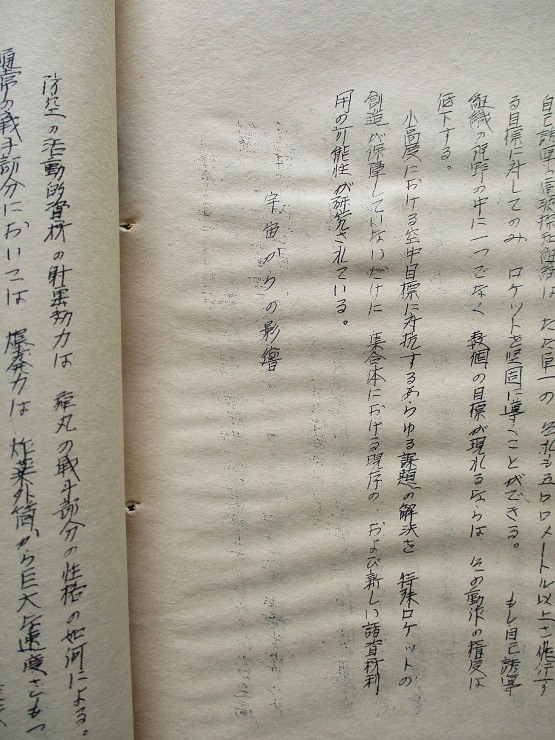 自己誘導
る目標に対してのみ ロケットを堅固に導くことができる。 もし自己誘導
組織の視野の中に一つでなく 数個の目標が現れるならば その動作の精度は
低下する。
小高度における空中目標に対抗するあらゆる課題の解決を 特殊ロケットの
創造が保障していないだけに 集合体における現存の および新しい諸資材利
用の可能性が研究されている。
宇宙からの影響
防空の活動的資材の射撃効力は 弾丸の戦斗部分の性格の如何による。
通常の戦斗部分においては 爆発力は 炸薬外筒から巨大な速度をもつ